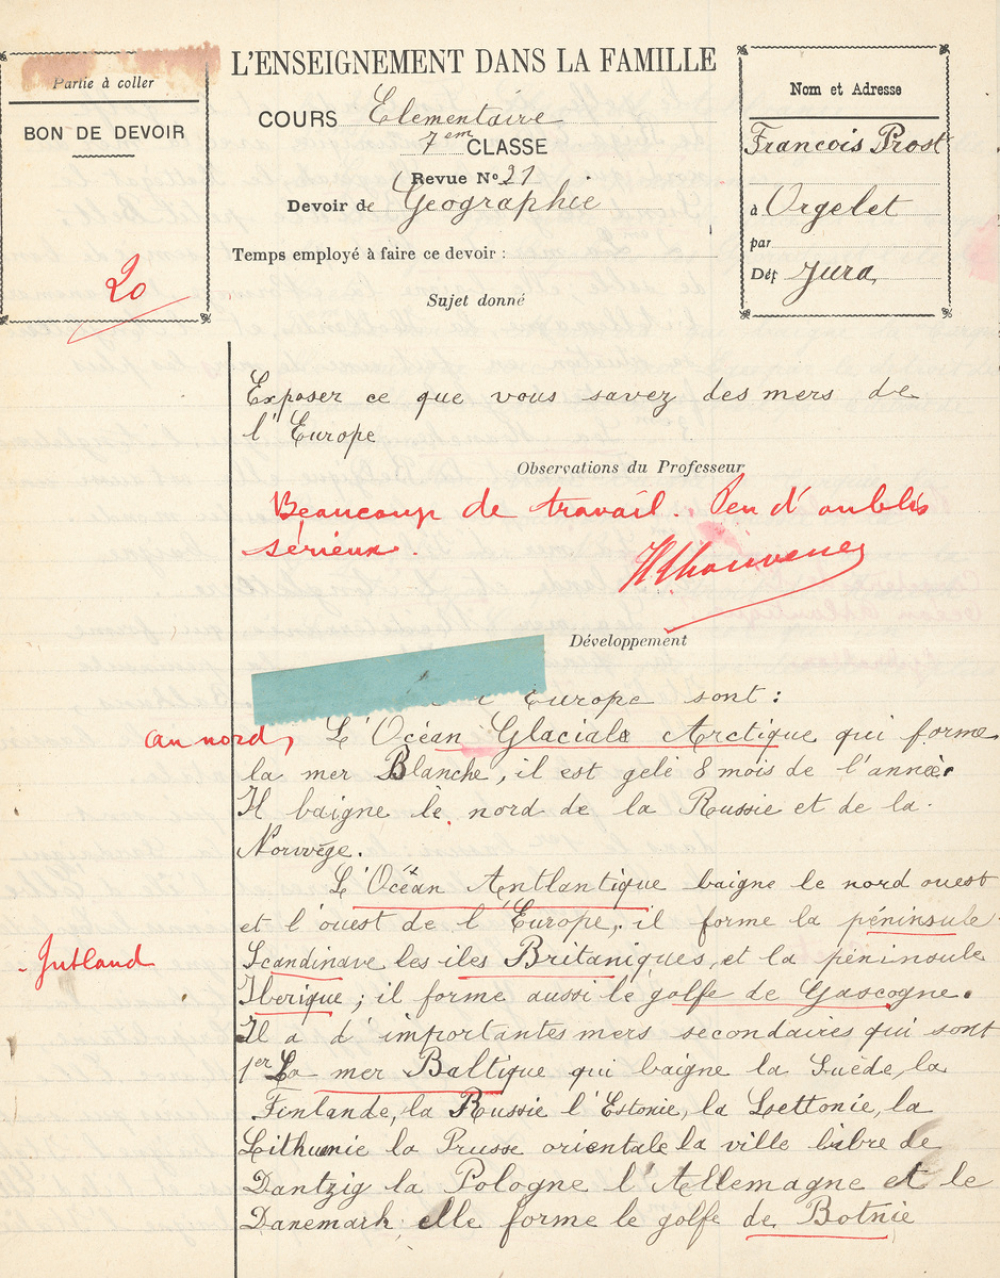 Partie à coller
BON DE DEVOIR
20
L'ENSEIGNEMENT DANS LA FAMILLE
COURS Elementaire
7em CLASSE
Revue No 21
Devoir de Geographie
Temps employé à faire ce devoir :
Sujet donné
Nom et Adresse
Francois Prost
à Orgelet
par
Dépt Jura
Exposer ce que vous savez des mers de
l'Europe
Observations du Professeur
Beaucoup de travail. Peu d'oublis
sérieux.
Développement
Europe sont :
au nord, L'Océan Glaciale Arctique qui forme
la mer Blanche, il est gelé 8 mois de l'année.
Il baigne le nord de la Russie et de la
Norwège.
L'Océan Antlantique baigne le nord ouest
et l'ouest de l'Europe, il forme la péninsule
- Jutland
Scandinave les iles Britaniques, et la péninsule
Iberique ; il forme aussi le golfe de Gascogne.
Il a d'importantes mers secondaires qui sont
1er La mer Baltique qui baigne la Suède, la
Finlande, la Russie l'Estonie, la Lsettonie, la
Lithunie la Prusse orientale la ville libre de
Dantzig la Pologne l'Allemagne et le
Danemark elle forme le golfe de Botnie